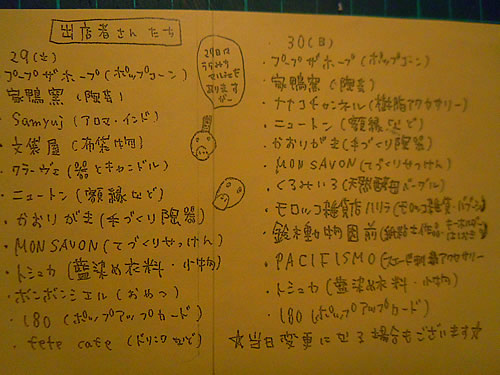 出店者さんたち
29(土)
・プープザホープ(ポップコーン)
家鴨窯(陶芸)
Samyuj(アロマ・インド)
・文袋屋(布袋物)
クラーヴェ(器とキャンドル)
・ニュートン(額縁など)
・かおりがま(手づくり陶器)
・MON SAVON(てづくりせっけん)
・トシュカ(藍染め衣料・小物)
・ボンボンシェル(おやつ)
・180(ポップアップカード)
・fete cafe(ドリンクなど)
29日は
30(日)
・プープザホープ(ポップコーン)
家鴨窯(陶芸)
・ナナコチャンネル(樹脂アクセサリー)
・ニュートン(額縁など)
・かおりがま(手づくり陶器)
・MON SAVON(てづくりせっけん)
・くるみいろ(天然酵母ベーグル)
・モロッコ雑貨店ハリラ(モロッコ雑貨・
・鈴木動物園前(紙粘土作品
・PACIFISMO(ビーズ刺繍アクセサリー
・トシュカ(藍染め衣料・小物)
・180(ポップアップカード)
☆当日変更になる場合もございます☆